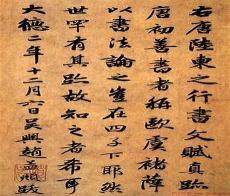 右唐陸柬之行書文賦真跡
唐初善書者稱歐虞褚薛
以書法論之豈在四子下耶然
世罕有其跡故知之者希耳
大德二年十一月六日吳興趙孟頫跋